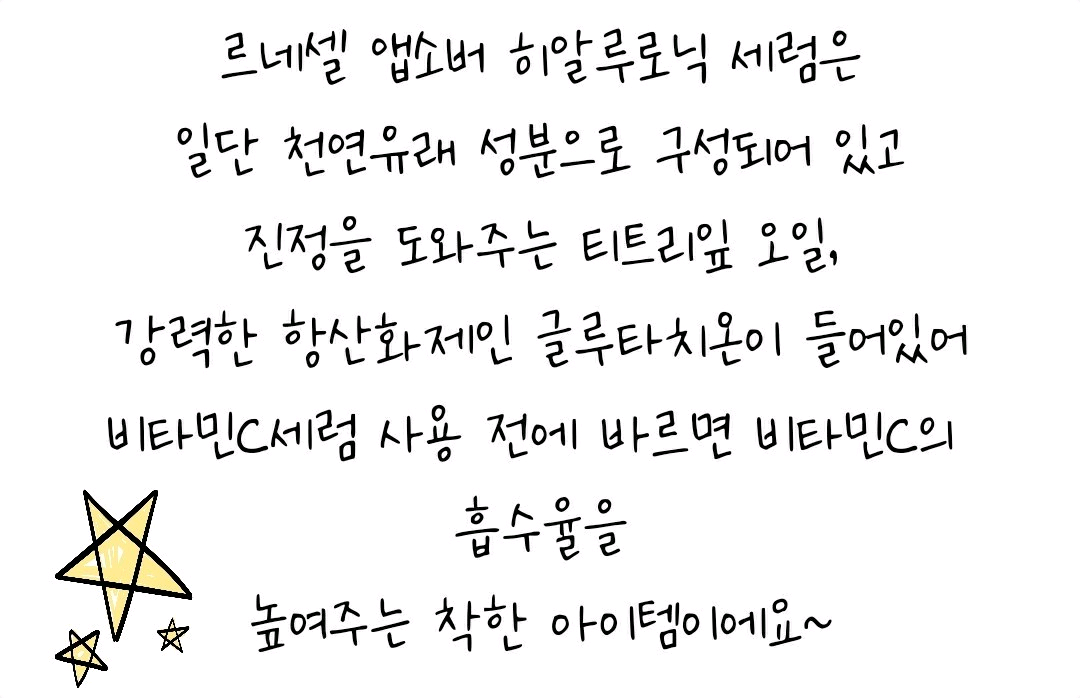 르네셀 앱소버 히알루로닉 세럼은
일단 천연유래 성분으로 구성되어 있고
진정을 도와주는 티트리잎 오일,
강력한 항산화제인 글루타치온이 들어있어
비타민C세럼 사용 전에 바르면 비타민C의
흡수율을
높여주는 착한 아이템이에요~